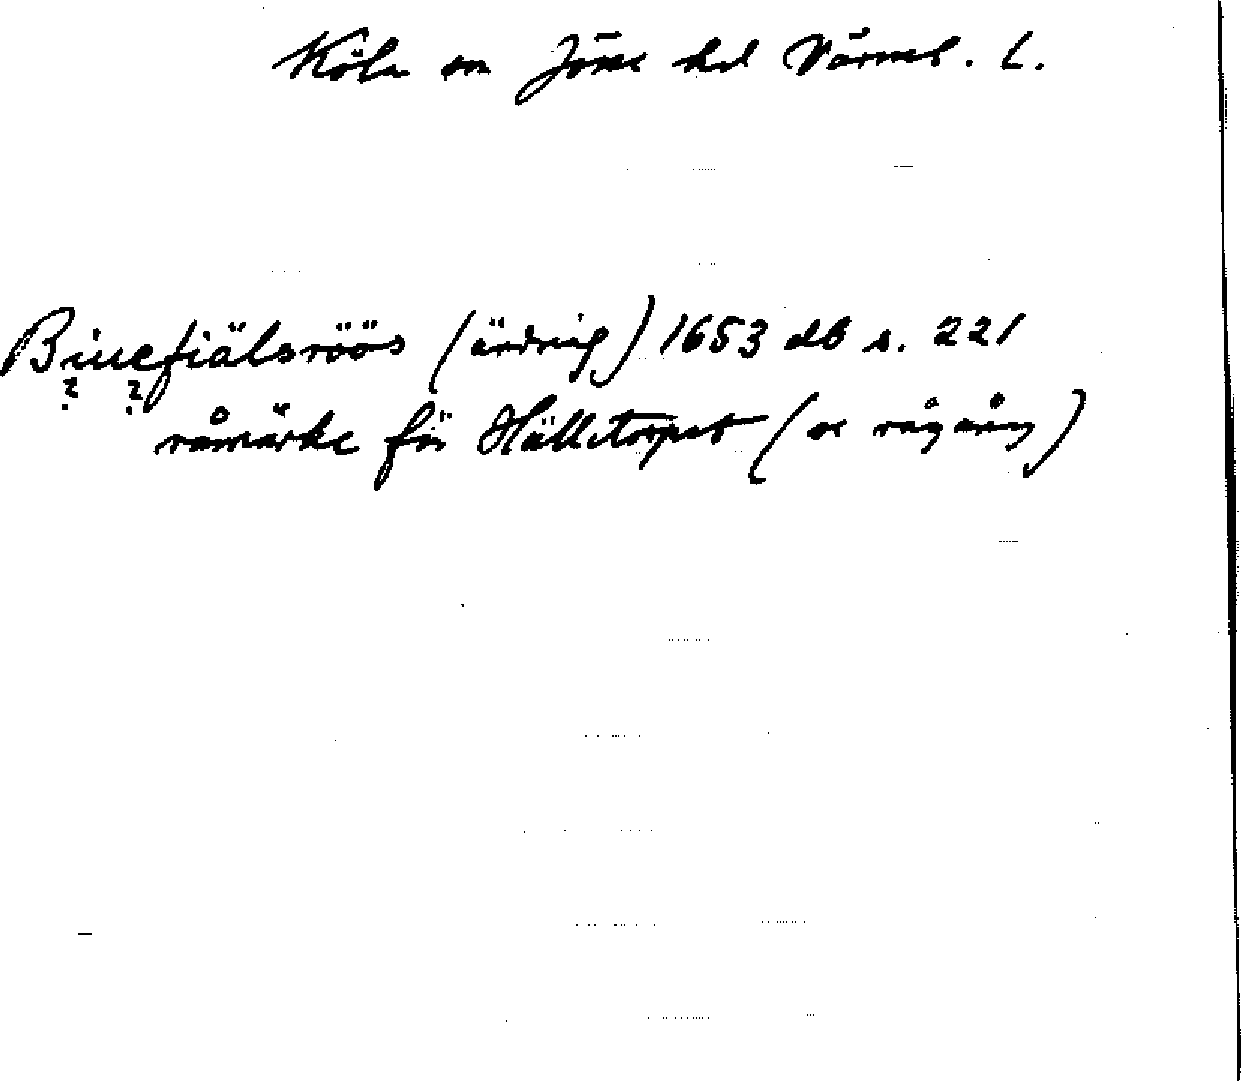 Köla sn Jösse hd Värmel. L.
Binefiälsröös (ändrig) 1653 db s. 221
? ?
råmärke för Hälletorpet (se rågång)